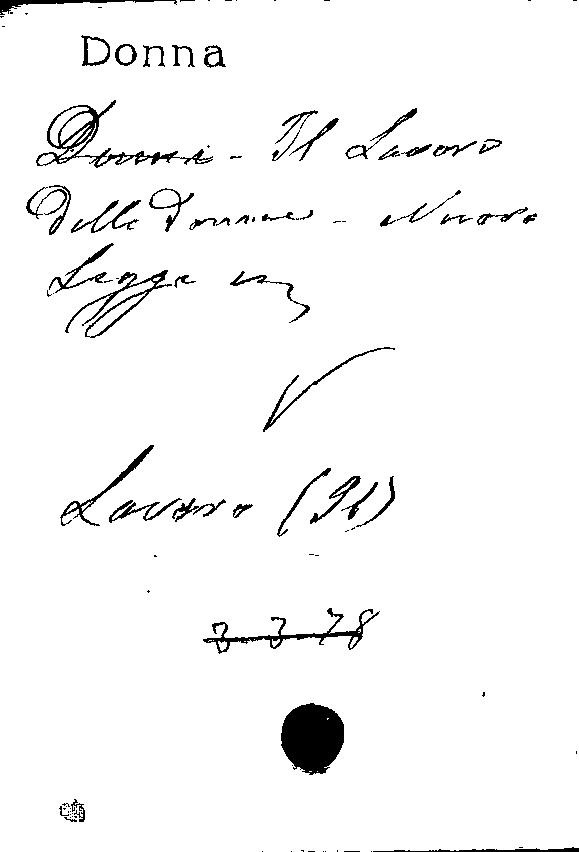 Donna
Donne - Il Lavoro
delle Donne - Nuova
Legge in
V
Lavoro (91)
3 3 78